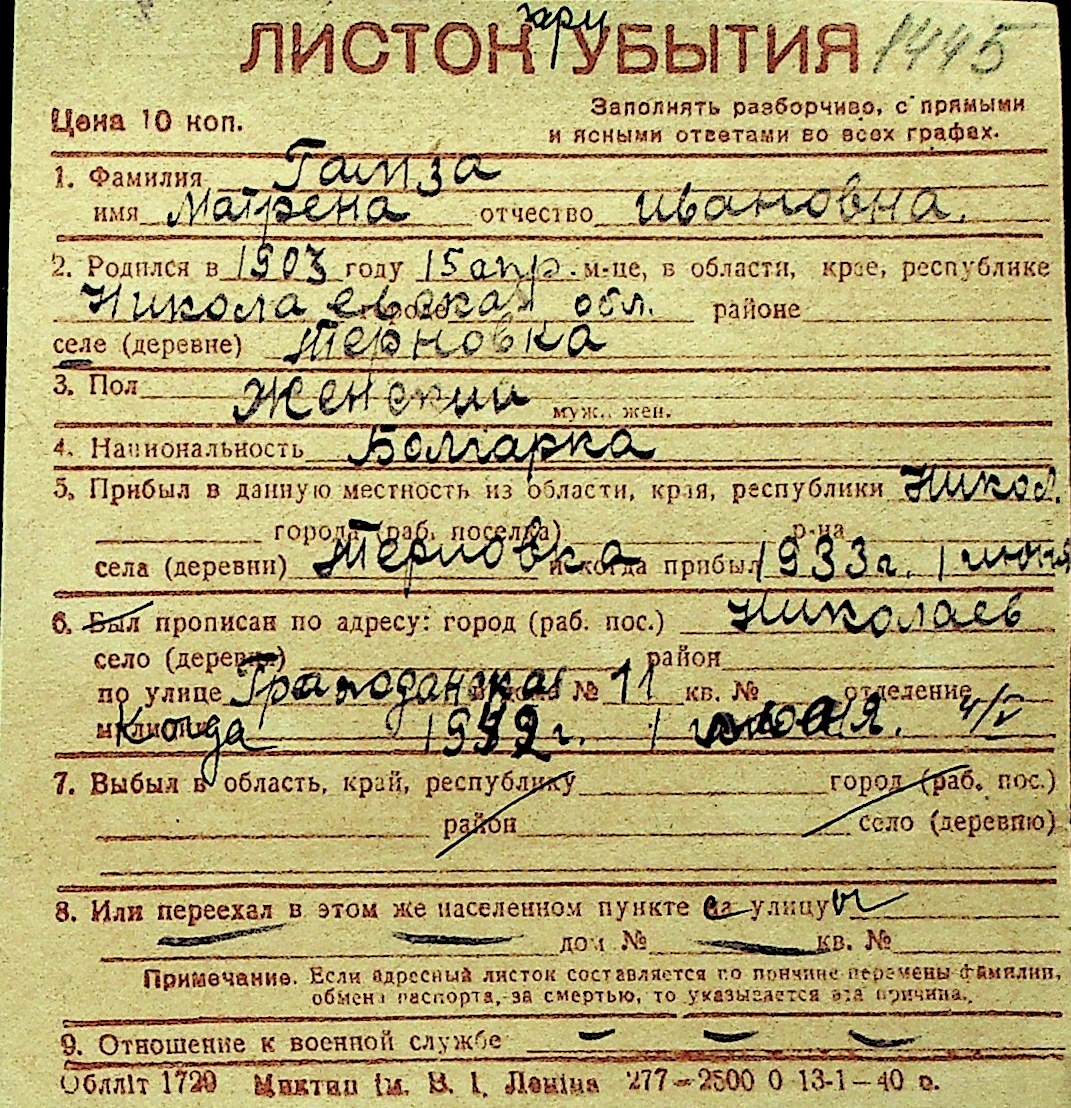 при
ЛИСТОК УБЫТИЯ 1445
Цена 10 коп.
Заполнять разборчиво, с прямыми
и ясными ответами во всех графах.
1. Фамилия Гайза
имя Матрена отчество Ивановна.
2. Родился в 1903 году 15 апр. м-це, в области, крае, республике
Николаевская обл. районе
селе (деревне) Терновка
3. Пол Женский муж., жен.
4. Национальность Болгарка
5. Прибыл в данную местность из области, края, республики Никол.
города (раб. поселка) р-на
села (деревни) Терновка и когда прибыл 1933 г. 1 июня
6. Был прописан по адресу: город (раб. пос.) Николаев
село (деревня) район
по улице Гражданская дом № 11 кв. № отделение
милиции Когда 1942 г. 1
7. Выбыл в область, край, республику город (раб. пос.)
район село (деревню)
8. Или переехал в этом же населенном пункте с улицы
дом № кв. №
Примечание. Если адресный листок составляется по причине перемены фамилии,
обмена паспорта, за смертью, то указывается эта причина.
9. Отношение к военной службе
Обллiт 1720 Миктип iм. В. I. Ленiна 277—2500 0 13-1—40 р.